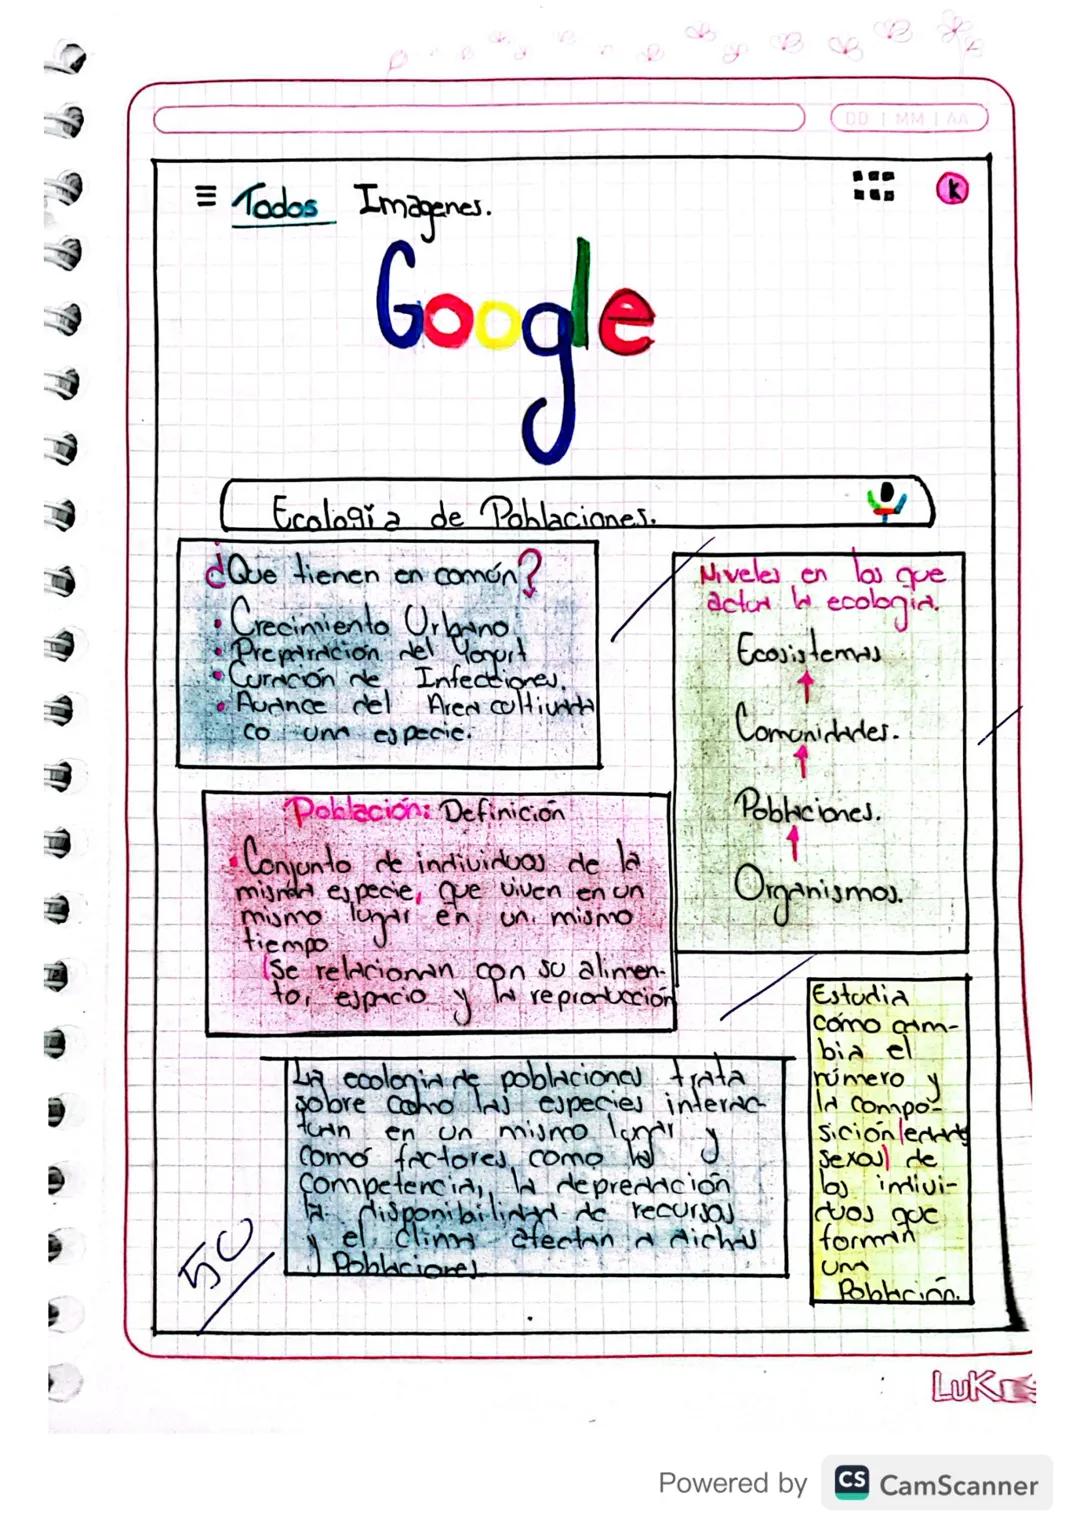 DD | MM | AA
Todos Imagenes.
K
Google
Ecologia de Poblaciones.
¿Que tienen en común?
• Crecimiento Urbano
• Preparación del Yogurt
• Curación de Infecciones.
• Avance del Area cultivada
co una especie.
Niveles en los que
actua la ecologia.
Ecosistemas
Comunidades.
Poblaciones.
Organismos.
Población: Definición
• Conjunto de individuos de la
misma especie, que viven en un
mismo lugar en un mismo
tiempo
Se relacionan con su alimen-
to, espacio y la reproducción
La ecologia de poblaciones trata
sobre como las especies interac-
tuan en un mismo lugar y
como factores, como la
competencia, la depredación
la disponibilidad de recursos
y el clima afectan a dichas
Poblaciones
Estudia
como cam-
bia el
número y
la compo-
sición (edad
sexos) de
los indivi-
duos que
forman
una
Población.
50
LUK
Powered by CS CamScanner